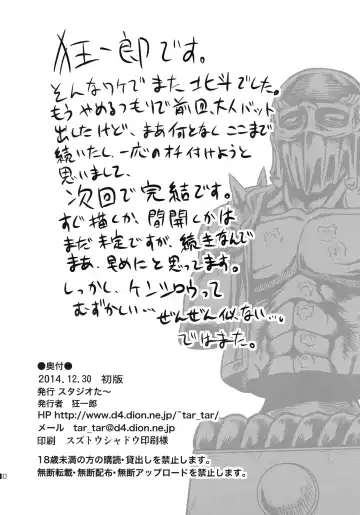 狂一郎です。
そんなワケでまた北斗でした。
もうやめるつもりで前回、大人バット
出したけど、まあ何となしここまで
続いたし、一応のオチ付けようと
思いまして、
次回で完結です。
すぐ描くか、間開くかは
まだ未定ですが、続きなんで
まあ、早めにと思ってます。
しっかし、ケンシロウって
むずかしい…ぜんぜん似ない…。
ではまた。
●奥付●
2014.12.30 初版
発行 スタジオた〜
発行者 狂一郎
HP http://www.d4.dion.ne.jp/~tar_tar/
メール tar_tar@d4.dion.ne.jp
印刷 スズトウシャドウ印刷様
18歳未満の方の購読・貸出しを禁止します。
無断転載・無断配布・無断アップロードを禁止します。